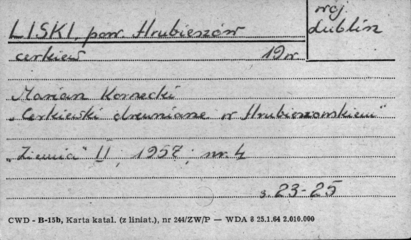 LISKI, pow. Hrubieszów
woj. Lublin
cerkiew 19 w.
Marian Kornecki
„Cerkiewki drewniane w Hrubieszowskiem"
„Ziemia" II, 1957, nr. 4
s. 23-25
CWD - B-15b, Karta katal. (z liniat.), nr 244/ZW/P — WDA 8 25.1.64 2.016.000